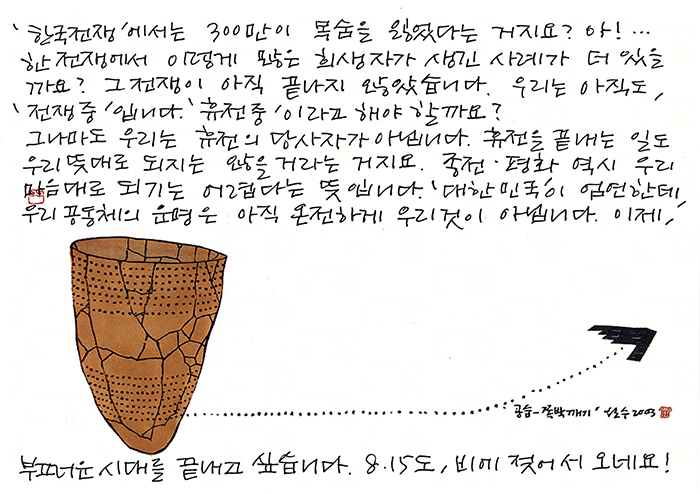 '한국전쟁'에서는 300만이 목숨을 잃었다는 거지요? 아!…
한 전쟁에서 이렇게 많은 희생자가 생긴 사례가 더 있을
까요? 그 전쟁이 아직 끝나지 않았습니다. 우리는 아직도,
'전쟁중'입니다. '휴전중'이라고 해야 할까요?
그나마도 우리는 휴전의 당사자가 아닙니다. 휴전을 끝내는 일도
우리 뜻대로 되지는 않을 거라는 거지요. 종전·평화 역시 우리
마음대로 되기는 어렵다는 뜻입니다. '대한민국'이 엄연한데,
우리 공동체의 운명은 아직 온전하게 우리것이 아닙니다. 이제,
공습-쪽박깨기' 철수 2003
부끄러운 시대를 끝내고 싶습니다. 8.15도, 비에 젖어서 오네요!